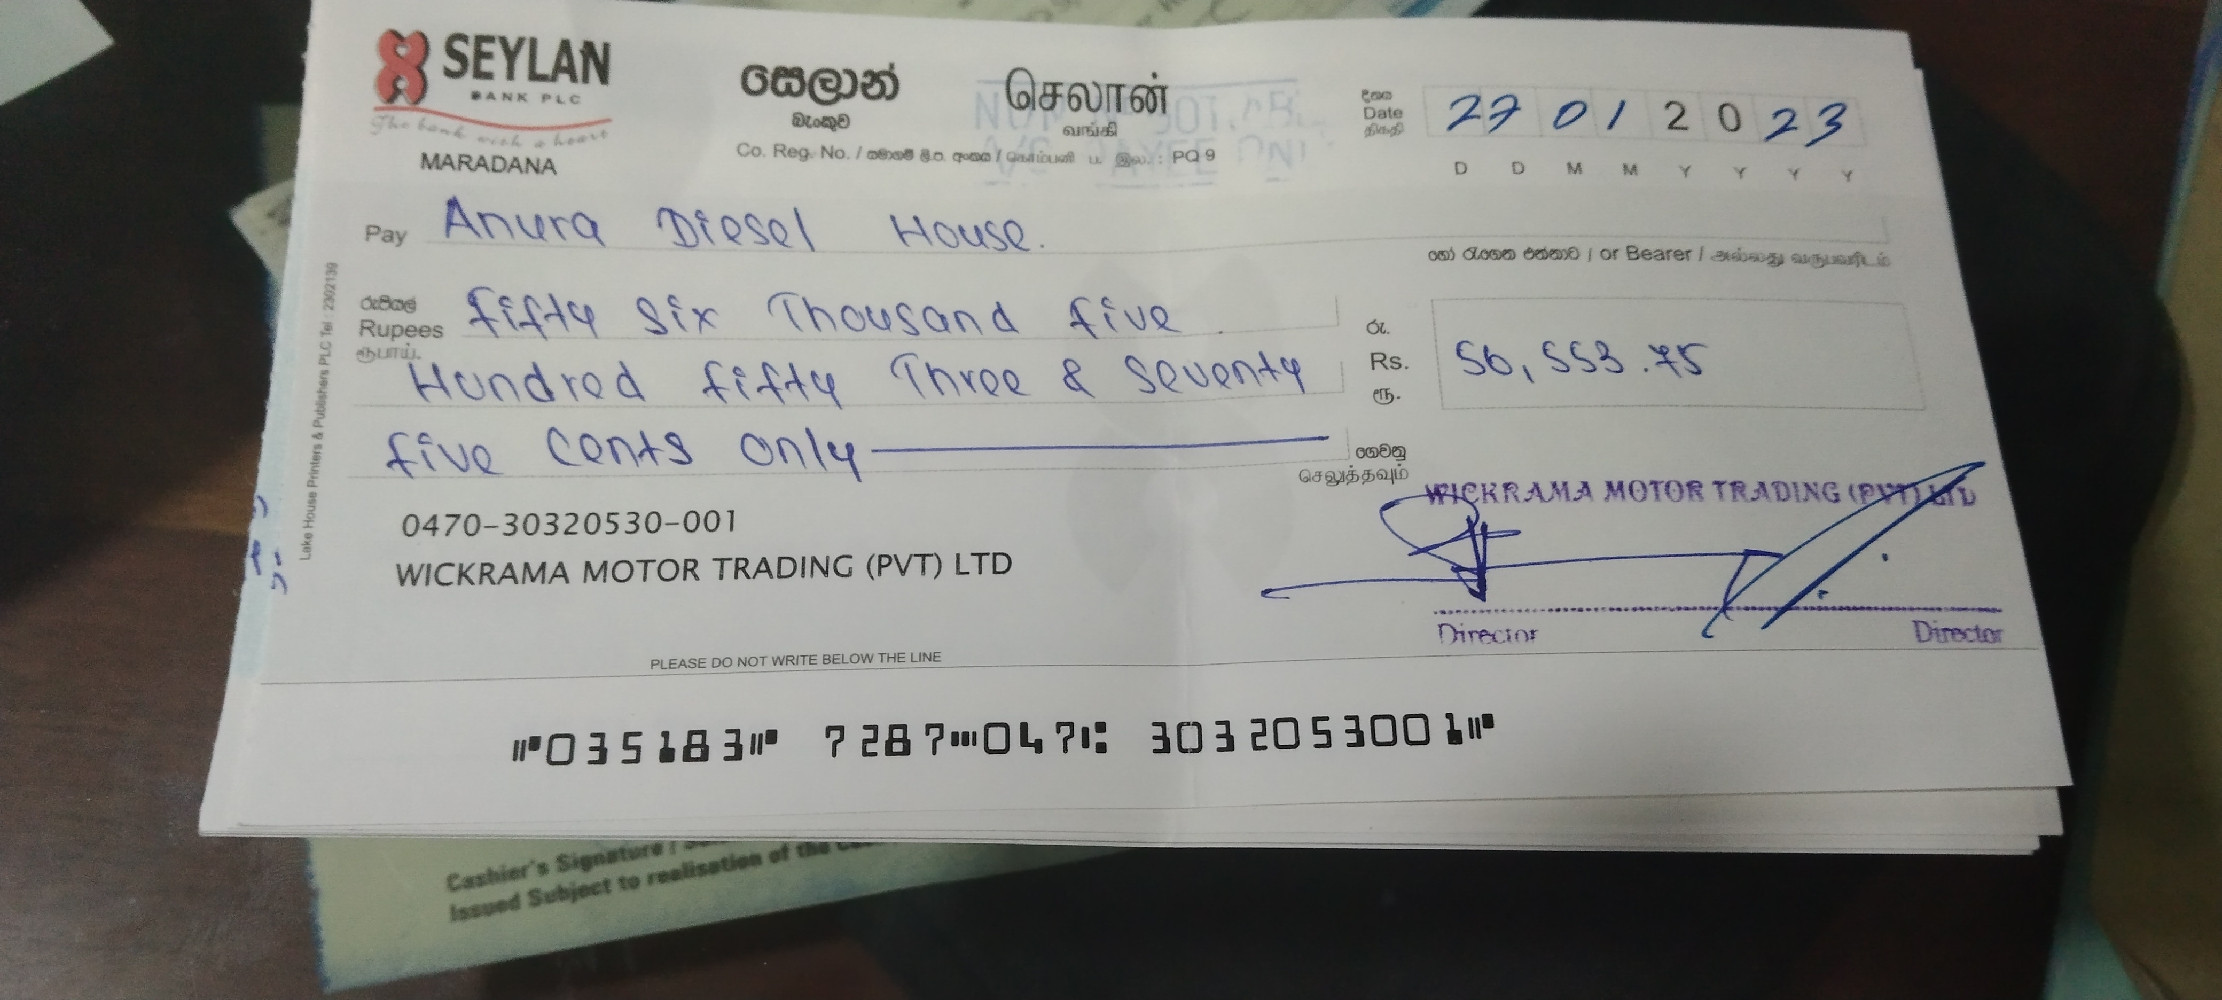 SEYLAN
BANK PLC
The bank with a heart
MARADANA
සෙලාන්
බැංකුව
செலான்
வங்கி
Co. Reg. No. / PQ 9
Date
27 01 2023
D D M M Y Y Y Y
Pay Anura Diesel House.
or Bearer /
රුපියල්
Rupees fifty six Thousand five
ரூபாய்.
Hundred fifty Three & Seventy
five Cents only
රු.
Rs. 56,553.75
ரூ.
ගෙවනු
செலுத்தவும்
0470-30320530-001
WICKRAMA MOTOR TRADING (PVT) LTD
WICKRAMA MOTOR TRADING (PVT) LTD
Director Director
PLEASE DO NOT WRITE BELOW THE LINE
035183 7287 047 3032053001
Lake House Printers & Publishers PLC Tel : 2302139
Cashier's Signature /
Issued Subject to realisation of the